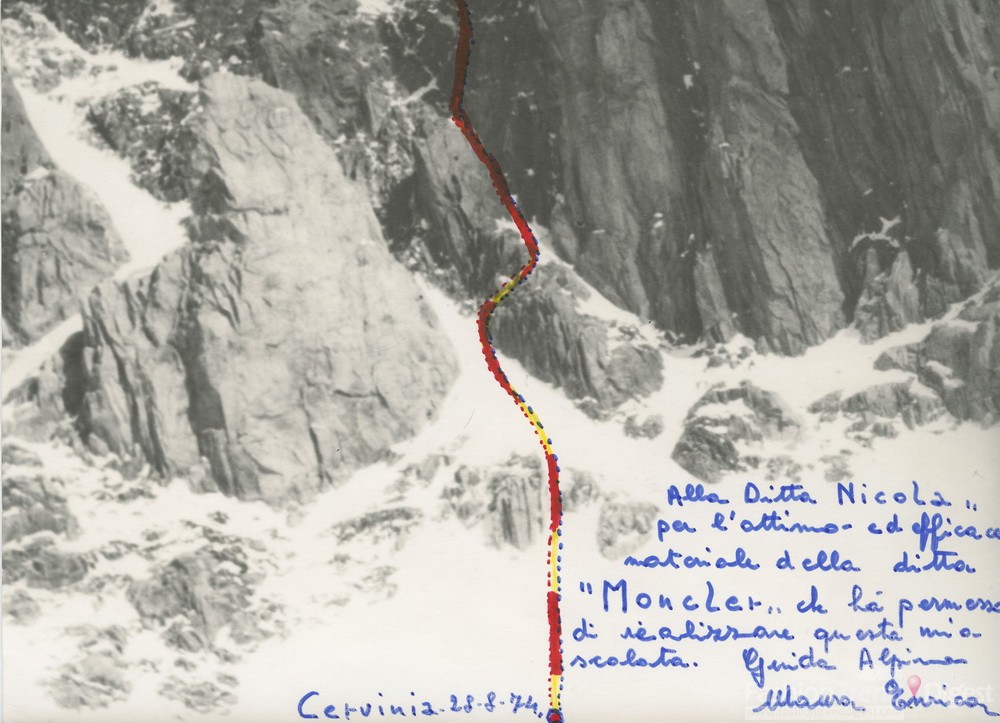 Alla Ditta Nicola „
per l'ottimo- ed efficace
materiale della ditta
"Moncler„ ch ha permesso
di realizzare questa mia
scalata. Guida Alpina
Cervinia-28-8-74. Maura Enrica
Digest